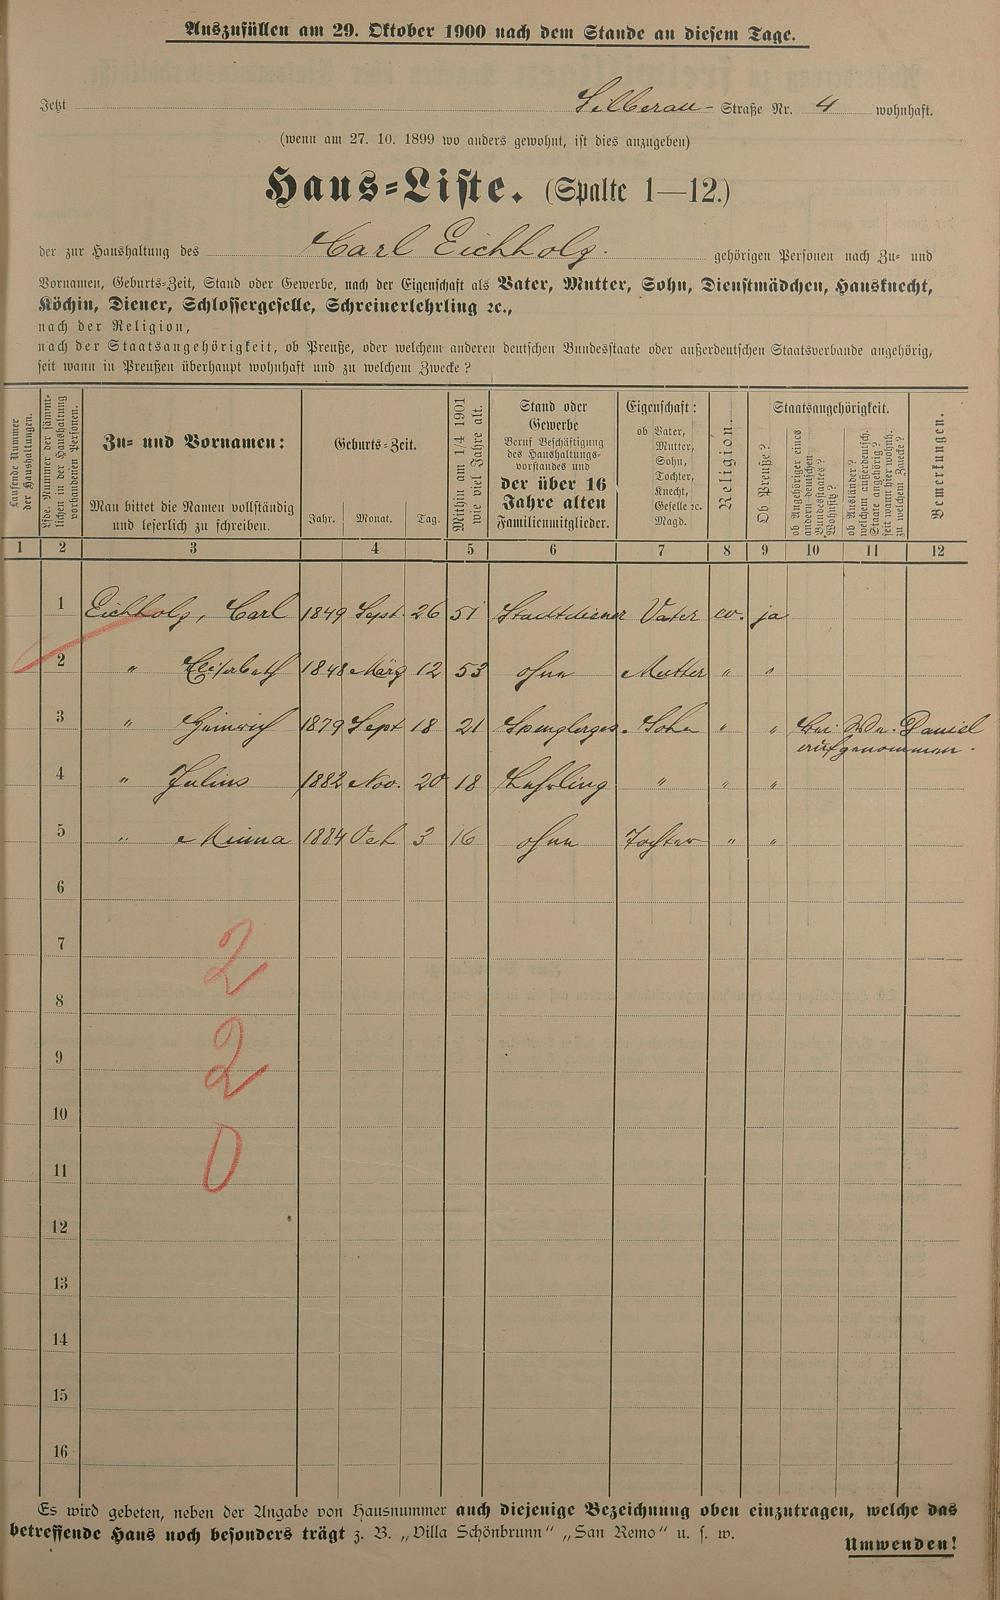 Auszufüllen am 29. Oktober 1900 nach dem Stande an diesem Tage.
Jetzt Silberau- Straße Nr. 4 wohnhaft.
(wenn am 27. 10. 1899 wo anders gewohnt, ist dies anzugeben)
Haus-Liste. (Spalte 1—12.)
der zur Haushaltung des Carl Eichholz. gehörigen Personen nach Zu- und
Vornamen, Geburts-Zeit, Stand oder Gewerbe, nach der Eigenschaft als Vater, Mutter, Sohn, Dienstmädchen, Hausknecht,
Köchin, Diener, Schlossergeselle, Schreinerlehrling ꝛc.,
nach der Religion,
nach der Staatsangehörigkeit, ob Preuße, oder welchem anderen deutschen Bundesstaate oder außerdeutschen Staatsverbande angehörig,
seit wann in Preußen überhaupt wohnhaft und zu welchem Zwecke?
Laufende Nummer
der Haushaltungen.
Lfde. Nummer der sämmt-
lichen in der Haushaltung
vorhandenen Personen.
Zu- und Vornamen:
Man bittet die Namen vollständig
und leserlich zu schreiben.
Geburts-Zeit.
Jahr. Monat. Tag.
Mithin am 1/4 1901
wie viel Jahre alt.
Stand oder
Gewerbe
Beruf Beschäftigung
des Haushaltungs-
vorstandes und
der über 16
Jahre alten
Familienmitglieder.
Eigenschaft:
ob Vater,
Mutter,
Sohn,
Tochter,
Knecht,
Geselle ꝛc.
Magd.
Religion.
Staatsangehörigkeit.
Ob Preuße?
ob Angehöriger eines
andern deutschen
Bundesstaates?
Wohnsitz?
ob Ausländer?
welchem außerdeutsch.
Staate angehörig?
seit wann hier wohnh.
zu welchem Zwecke?
Bemerkungen.
1 2 3 4 5 6 7 8 9 10 11 12
1 Eichholz, Carl 1849 Sept. 26 51 Stadtdiener Vater ev. ja
2 " Elisabeth 1848 März 12 53 ohne Mutter " "
3 " Heinrich 1879 Sept 18 21 Spenglerges. Sohn " " bei We. Daniel
aufgenommen.
4 " Julius 1882 Nov. 20 18 Lehrling " " "
5 " Minna 1884 Oct 3 16 ohne Tochter " "
6
7 2
8
9 2
10
11 0
12
13
14
15
16
Es wird gebeten, neben der Angabe von Hausnummer auch diejenige Bezeichnung oben einzutragen, welche das
betreffende Haus noch besonders trägt z. B. „Villa Schönbrunn“ „San Remo“ u. s. w.
Umwenden!